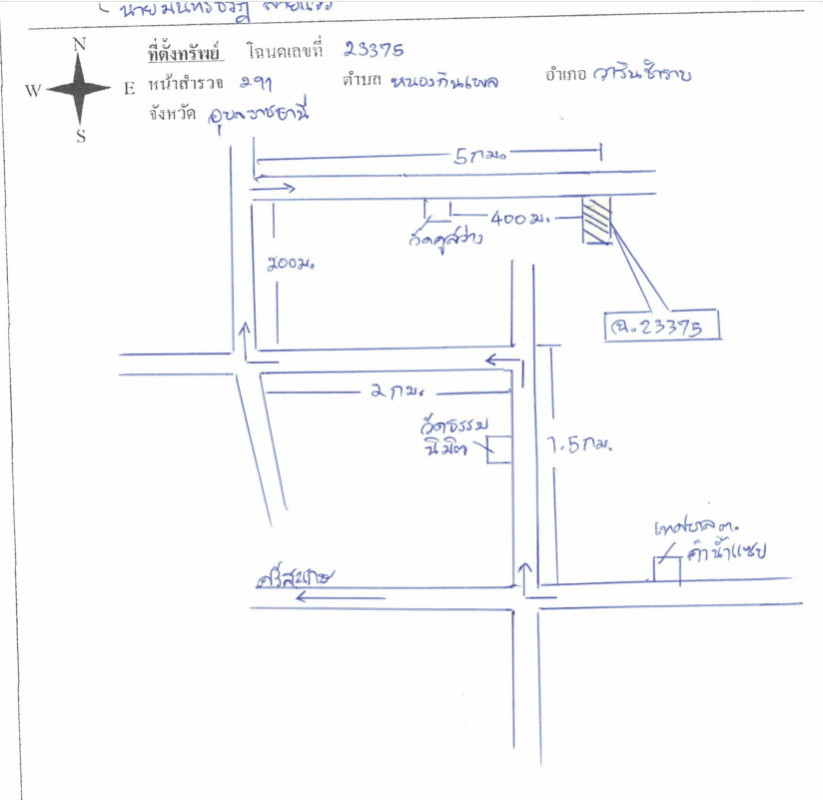 นาย
N
ที่ตั้งทรัพย์ โฉนดเลขที่ 23375
W E หน้าสำรวจ 291 ตำบล หนองกินเพล อำเภอ วารินชำราบ
S
จังหวัด อุบลราชธานี
5 กม.
400 ม.
วัดคูสว่าง
200 ม.
ฉ.23375
2 กม.
วัดธรรม
นิมิต
1.5 กม.
เทศบาล ต.
คำน้ำแซบ
ศรีสะเกษ